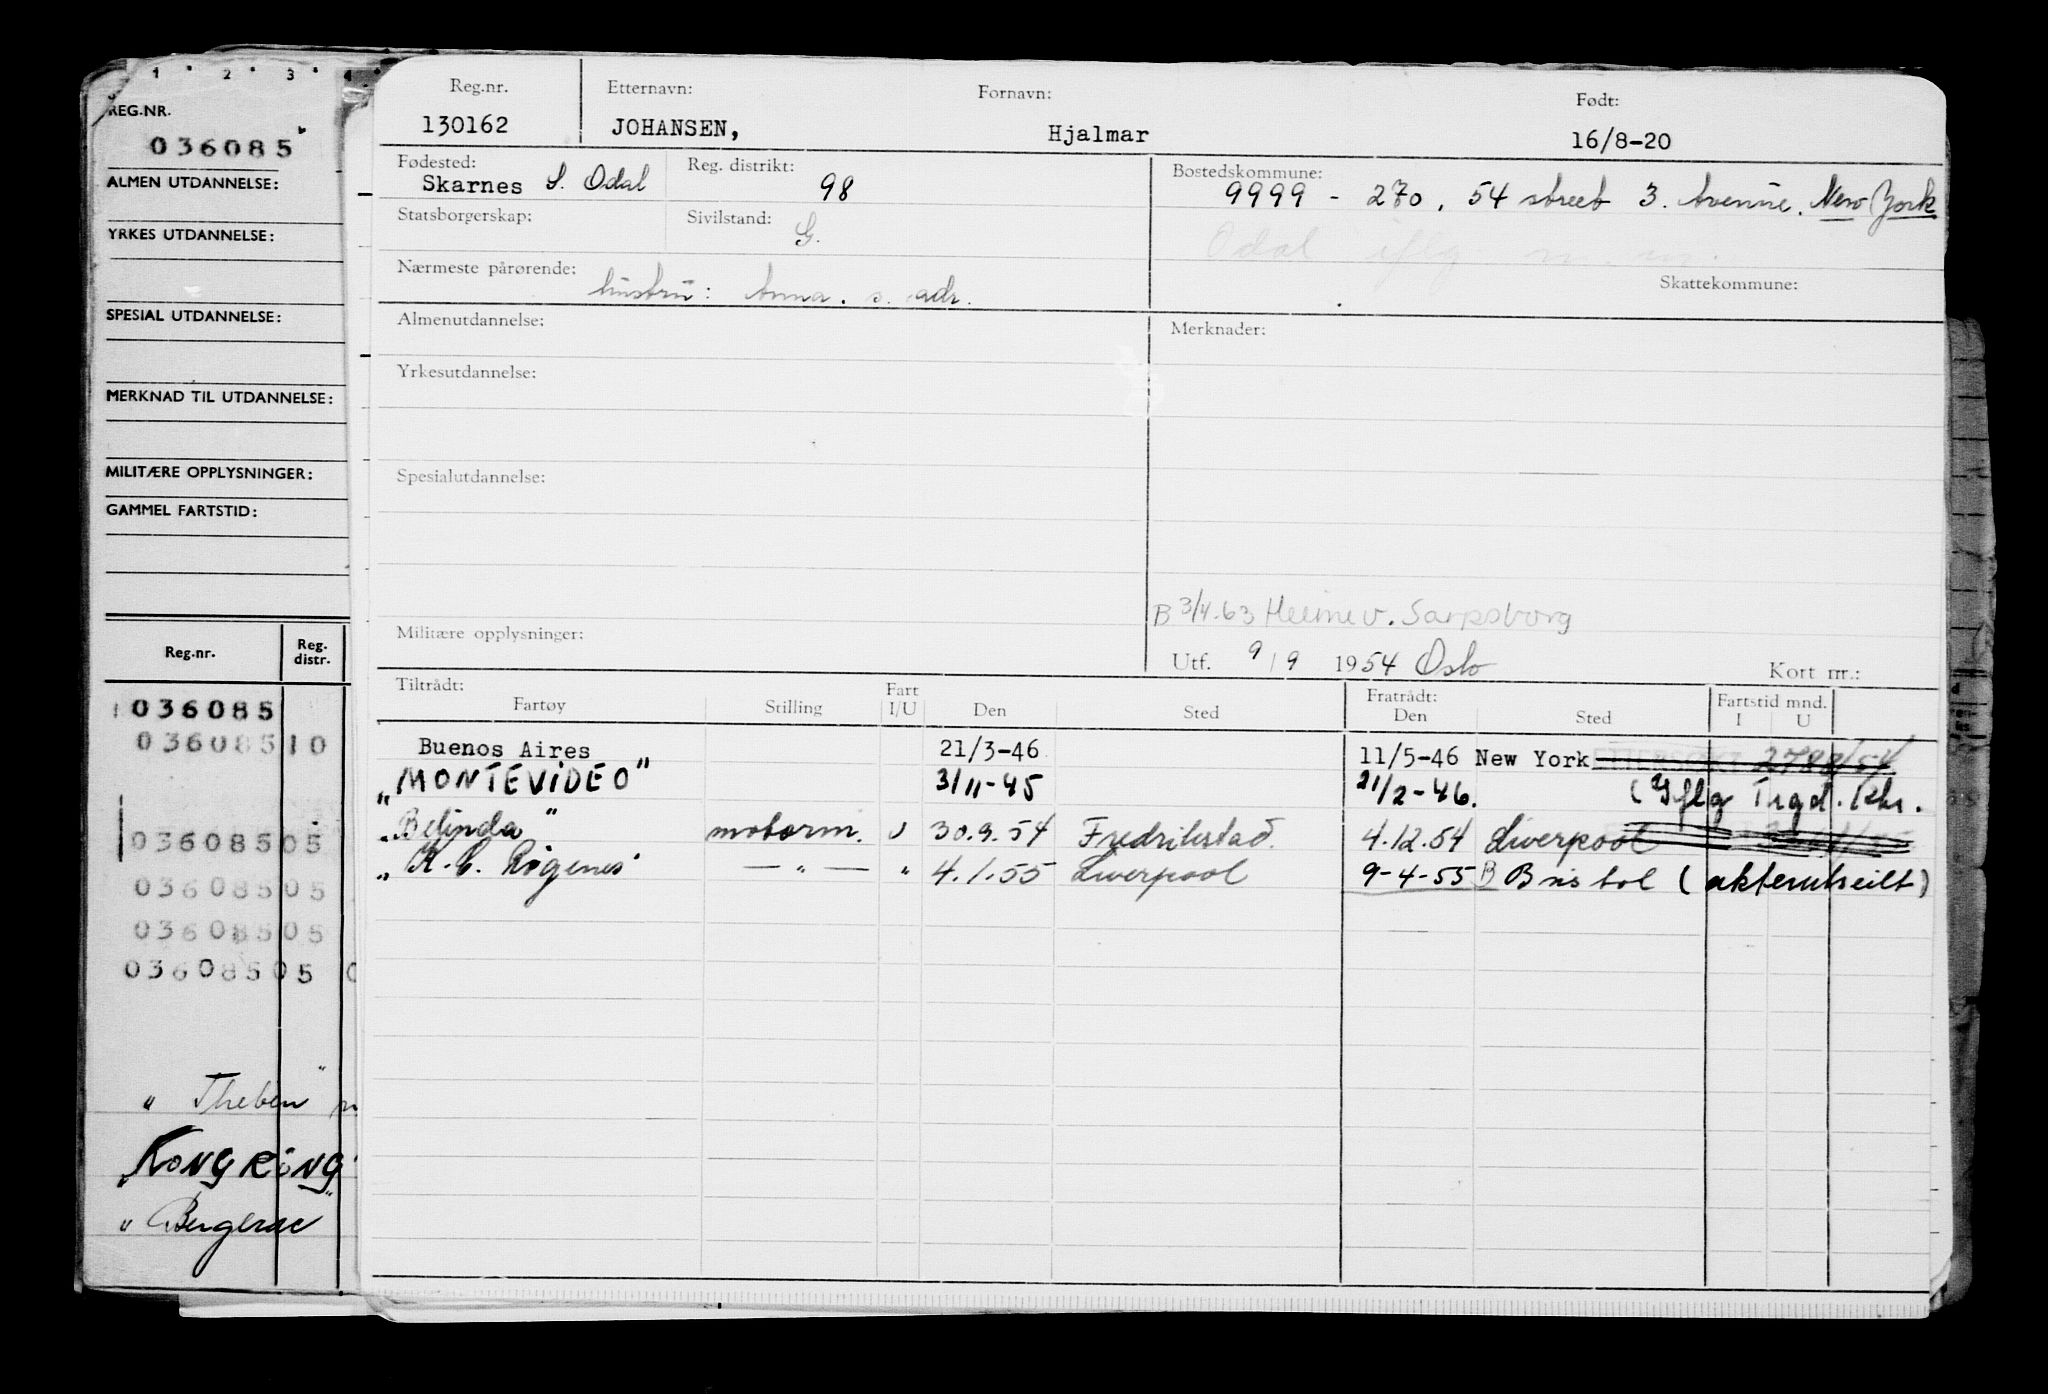 1 2 3 4
REG.NR.
036085
ALMEN UTDANNELSE:
YRKES UTDANNELSE:
SPESIAL UTDANNELSE:
MERKNAD TIL UTDANNELSE:
MILITÆRE OPPLYSNINGER:
GAMMEL FARTSTID:
Reg.nr. Reg. distr.
036085
036085 10
036085 05
036085 05
036085 05
036085 05
" Theben "
"KONGRING"
" Bergerac
Reg.nr. Etternavn: Fornavn: Født:
130162 JOHANSEN, Hjalmar 16/8-20
Fødested: Reg. distrikt: Bostedskommune:
Skarnes S. Odal 98 9999 - 270, 54 street 3. Avenue. New York
Statsborgerskap: Sivilstand: G.
Odal iflg m.m.
Nærmeste pårørende: hustru: Anna. s. adr.
Skattekommune:
Almenutdannelse: Merknader:
Yrkesutdannelse:
Spesialutdannelse:
B 3/4.63 Heimev. Sarpsborg
Militære opplysninger:
Utf. 9/9 1954 Oslo Kort nr.:
Tiltrådt: Fartøy Stilling Fart I/U Den Sted Fratrådt: Den Sted Fartstid mnd. I U
Buenos Aires 21/3-46 11/5-46 New York
"MONTEVIDEO" 3/11-45 21/2-46. (Iflg Trgd.
"Belinda" motorm. U 30.9.54 Fredrikstad. 4.12.54 Liverpool
" H. C. Røgenes — " — " 4.1.55 Liverpool 9-4-55 B Bristol (akterutseilt)